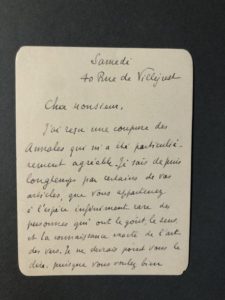 Samedi
40 Rue de Villejust
Cher Monsieur,
J'ai reçu une coupure des
Annales qui m'a été particuliè-
rement agréable. Je sais depuis
longtemps par certains de vos
articles, que vous appartenez
à l'espèce infiniment rare des
personnes qui ont le goût, le sens
et la connaissance exacte de l'art
des vers. Je ne devrais point vous le
dire, puisque vous voulez bien